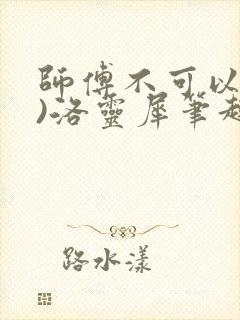 師傅不可以
)洛靈犀筆趣
路水漾